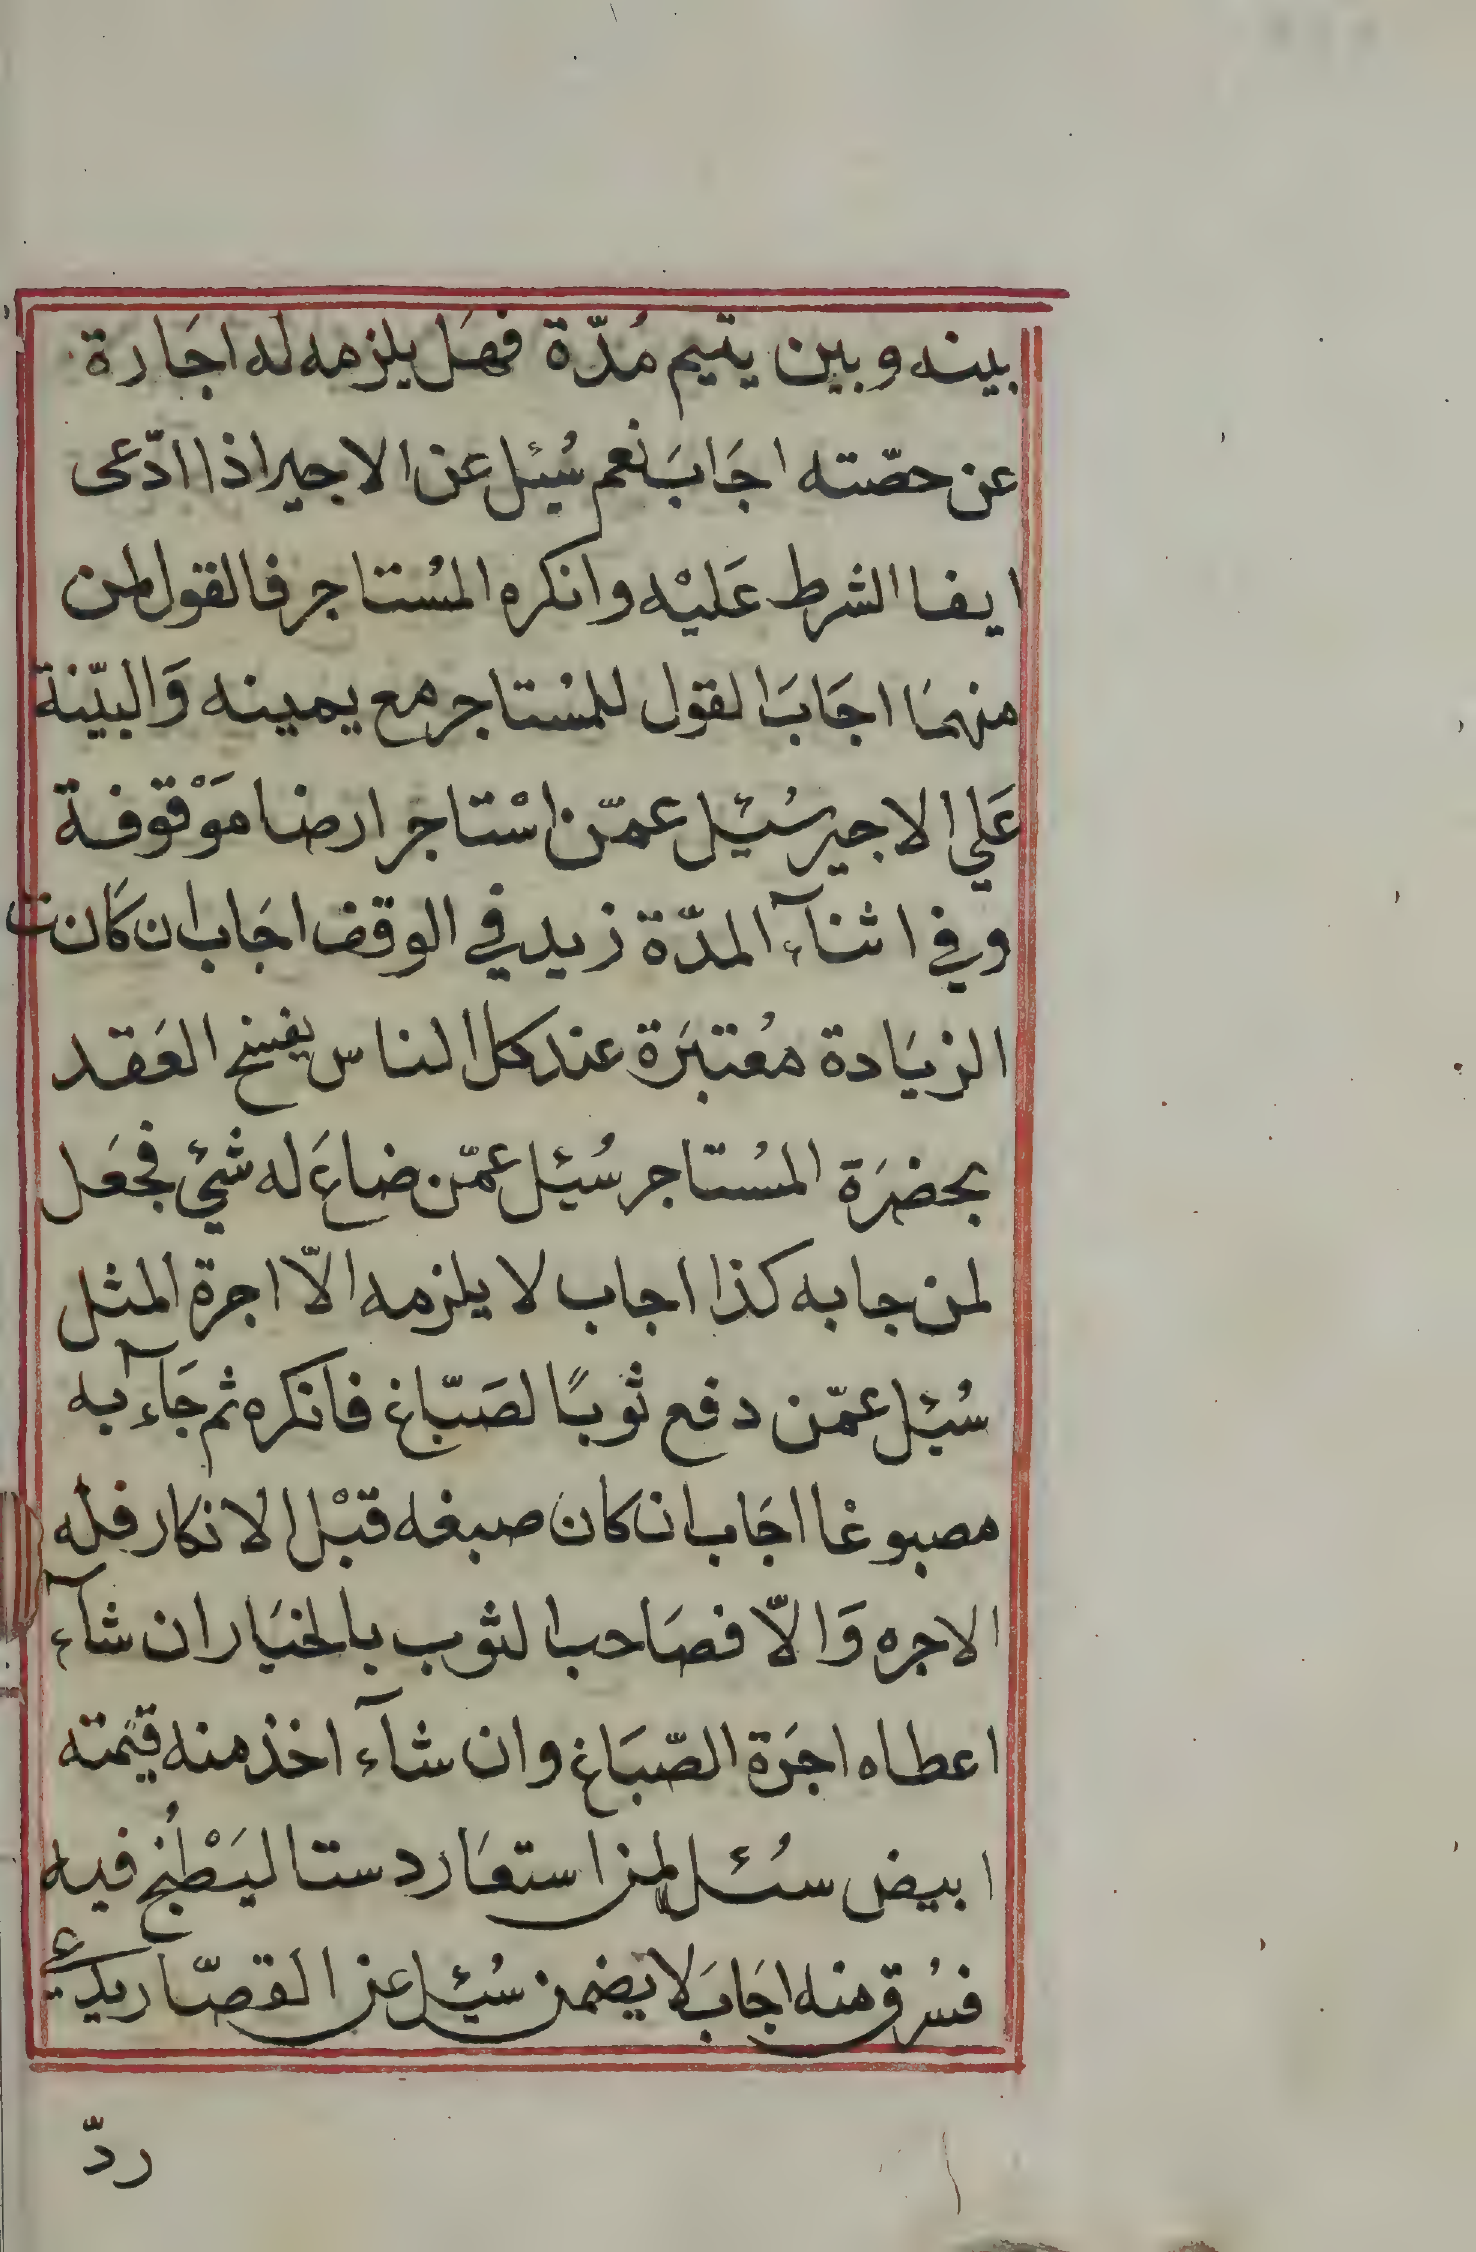 بينه وبين يتيم مُدّة فهَل يلزمه له اجَارة
عن حصّته اجَابَ نعم سُئل عن الاجير اذا ادّعى
ايفا الشرط عَليْه وانكره المسُتاجر فالقول لمن
منهمَا اجَابَ القول للمسُتاجر مع يمينه وَالبيّنة
عَلي الاجير سُئل عمّن اسْتاجر ارضا مَوْقوفة
وفي اثنآء المدّة زيد في الوقف اجَاب ان كَانت
الزيَادة مُعتبَرة عند كل الناس يفسخ العَقد
بحضرَة المسُتاجر سُئل عمّن ضاعَ له شيْ فجعَل
لمن جا به كذا اجاب لا يلزمه الاّ اجرة المثل
سُئل عمّن دفع ثوبًا لصَبّاغ فانكره ثم جَآء به
مصبوغا اجَاب ان كان صبغه قبْل الانكار فله
الاجره وَالاّ فصَاحب الثوب بالخيَار ان شآء
اعطاه اجرَة الصّبَاغ وان شآء اخذ منه قيمته
ابيض سُئل لمن استعَار دستا ليَطْبُخ فيه
فسُرق منه اجَابَ لا يضمن سُئل عن القصّار يدعي
ردّ